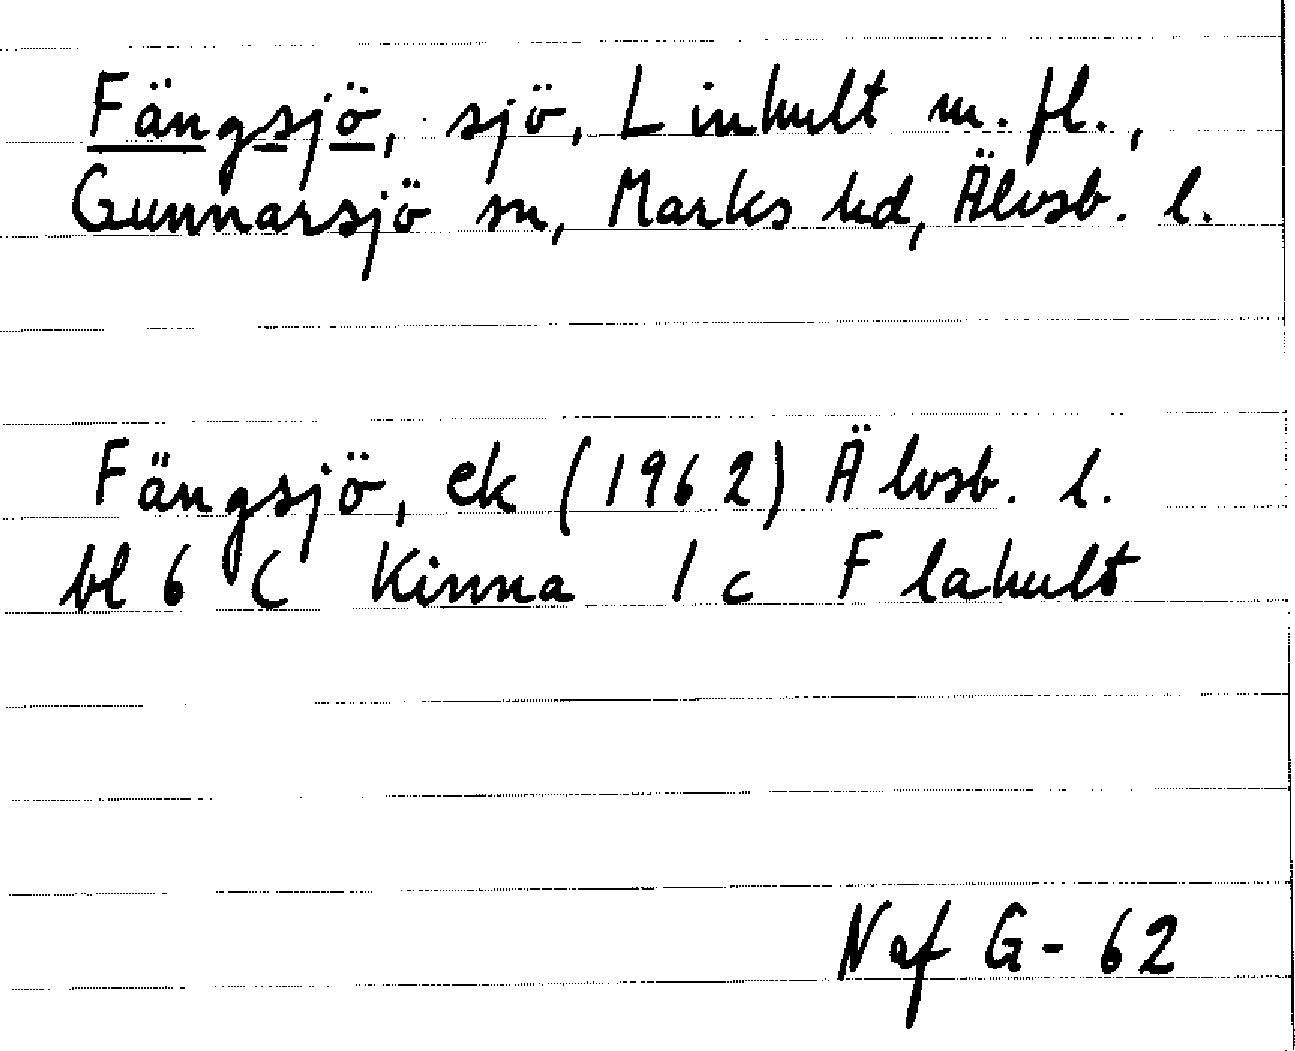 Fängsjö, sjö, Linhult m. fl.,
Gunnarsjö sn, Marks hd, Älvsb. l.
Fängsjö, ek (1962) Älvsb. l.
bl 6 C Kinna 1 c Flahult
Naf G-62